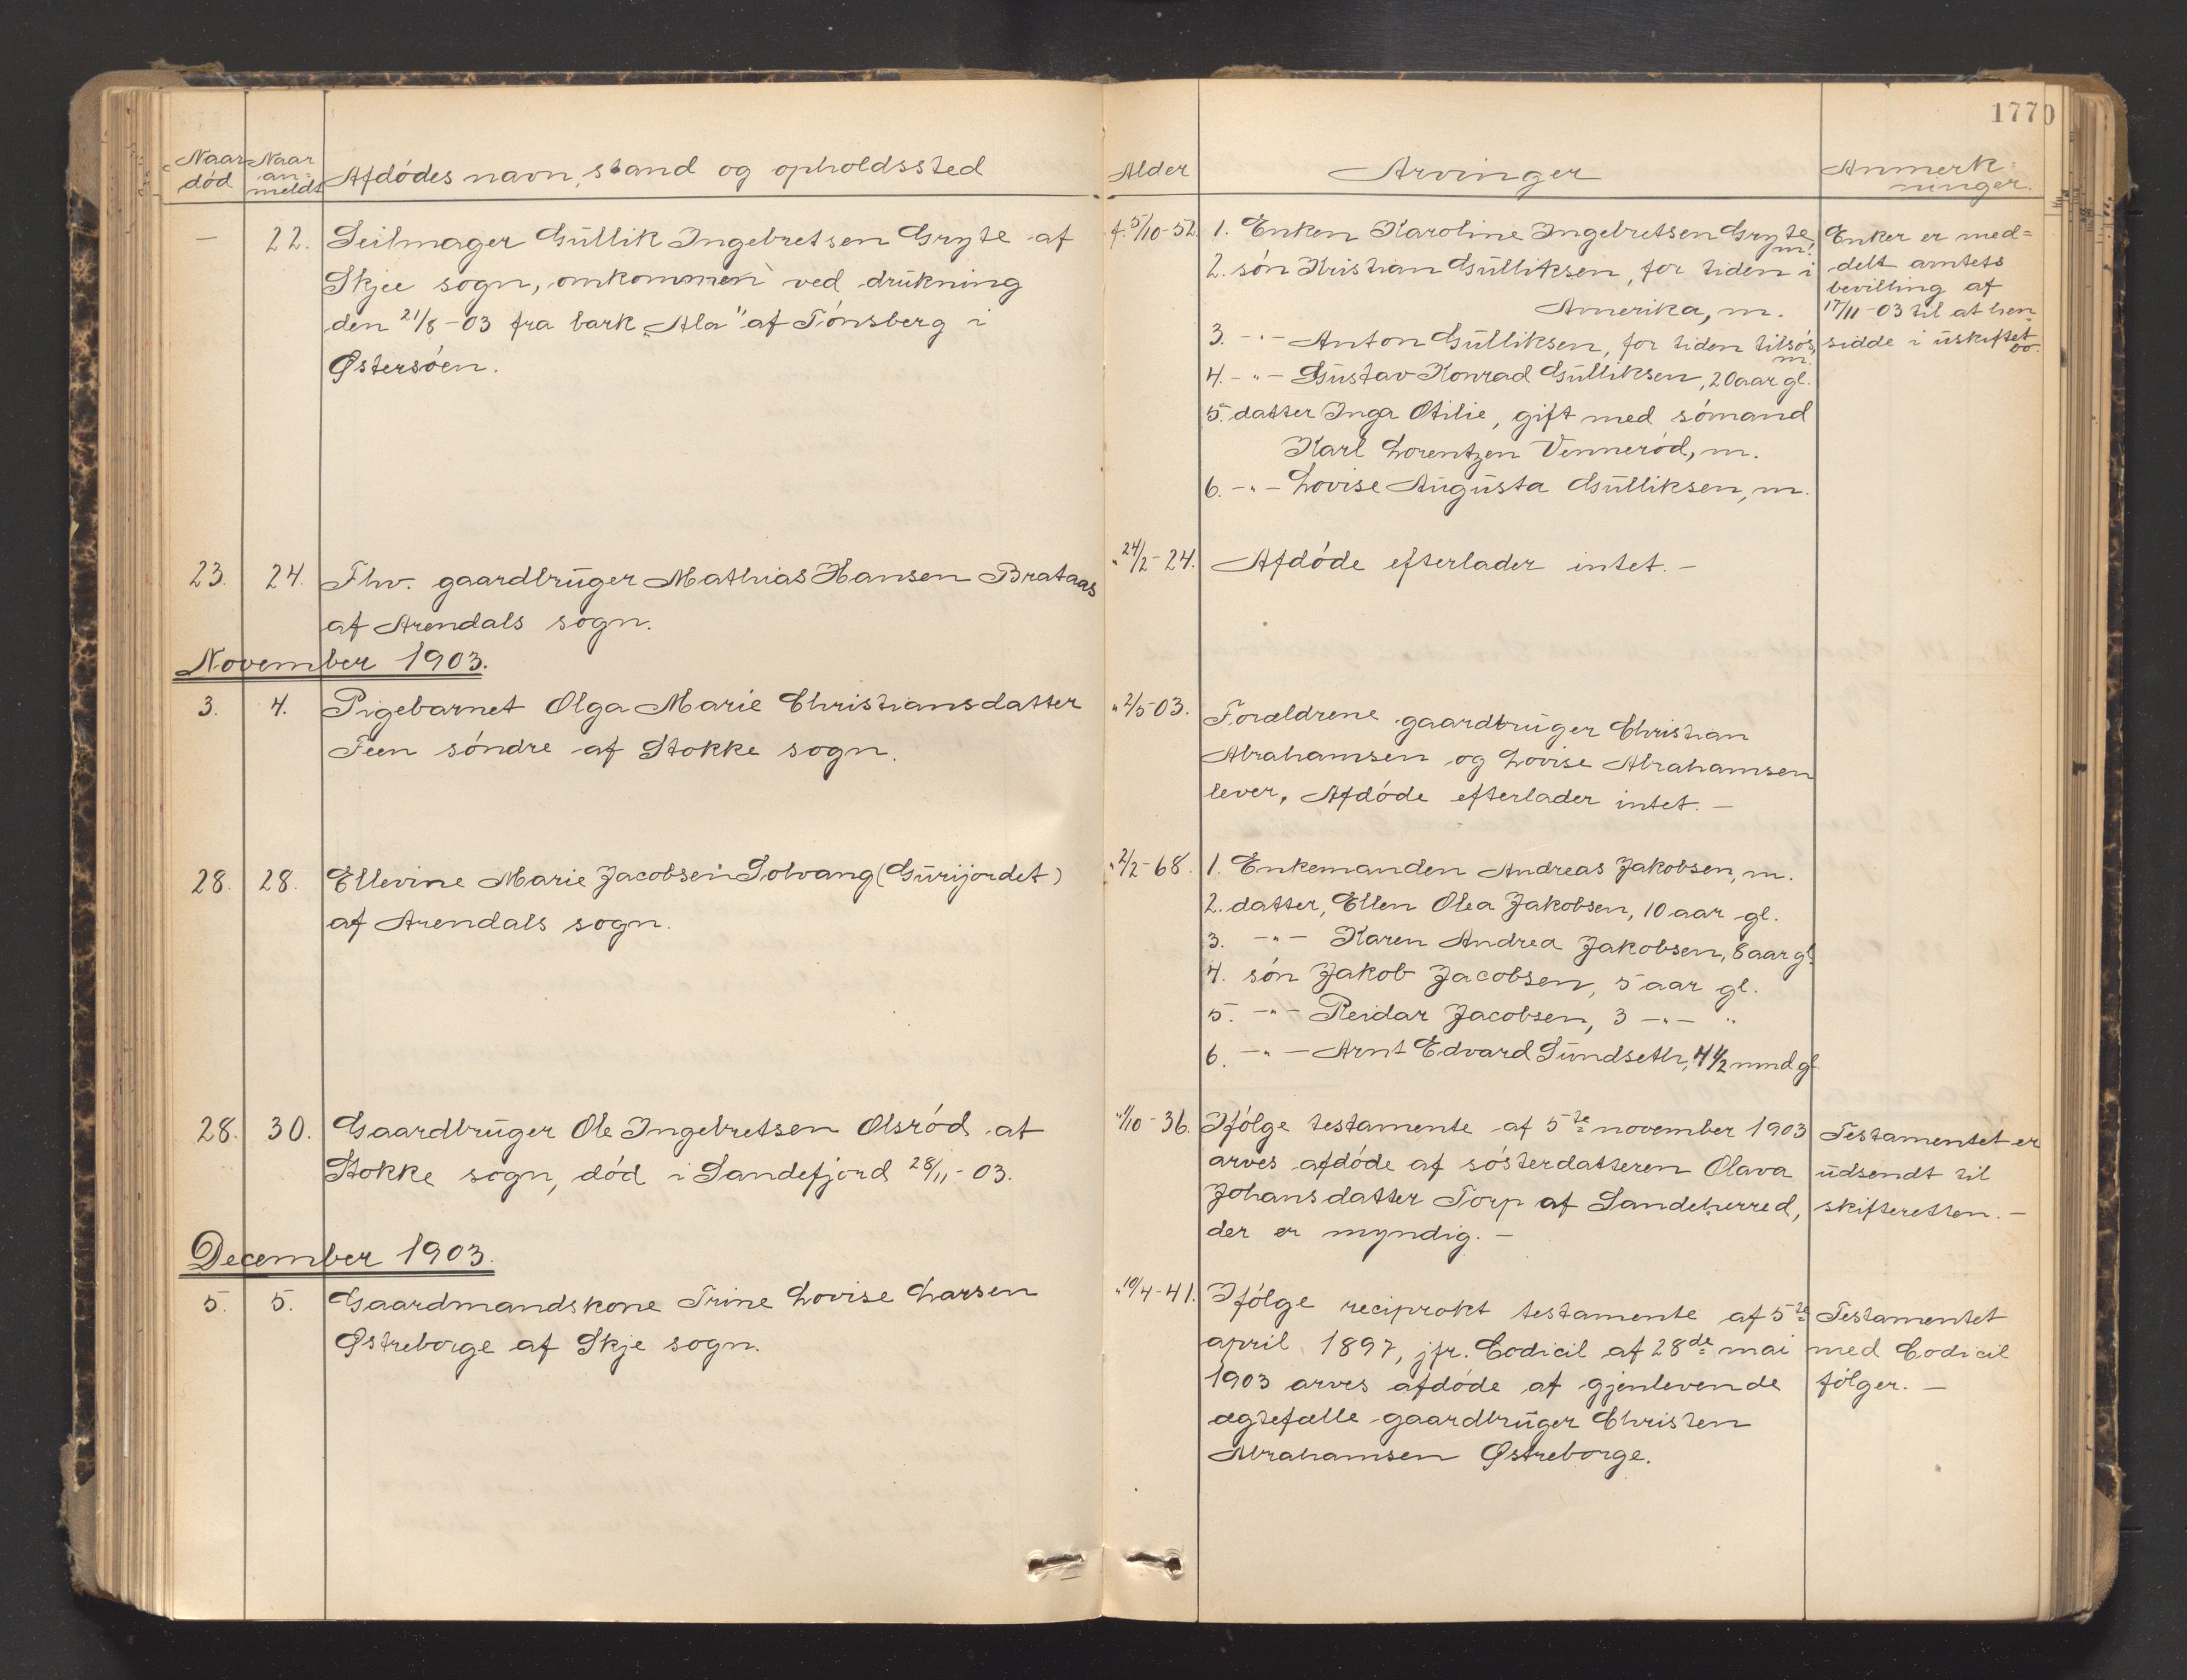 1770
Naar død
Naar an= meldt
Afdódes navn, stand og opholdssted
— 22. Seilmager Gūllik Ingebretsen Gryte af
Skjee sogn, omkommen ved drūkning
den 21/8-03 fra bark „Ala" af Tónsberg i
Østersóen.
23. 24. Fhv. gaardbrūger Mathias Hansen Brataas
af Arendals sogn.
November 1903.
3. 4. Pigebarnet Olga Marie Christiansdatter
Feen sóndre af Stokke sogn.
28. 28. Ellevine Marie Jacobsen Solvang (Gūrijordet)
af Arendals sogn.
28. 30. Gaardbrūger Ole Ingebretsen Olsród af
Stokke sogn, død i Sandefjord 28/11-03.
December 1903.
5. 5. Gaardmandskone Trine Lovise Larsen
Østreborge af Skje sogn.
Alder
Arvinger
Anmerk= ninger.
f. 5/10-52. 1. Enken Karoline Ingebretsen Gryte, m.
2. són Kristian Gūlliksen, for tiden i
Amerika, m.
3. -"- Anton Gūlliksen, for tiden tilsós, m.
4. -"- Gūstav Konrad Gūlliksen, 20 aar gl.
5. datter Inga Otilie, gift med sómand
Karl Lorentzen Vennerød, m.
6. -"- Lovise Aūgūsta Gūlliksen, m.
Enker er med=
delt amtets
bevilling af
17/11-03 til at hen=
sidde i ūskiftet
bo.
" 24/2-24. Afdóde efterlader intet. —
" 2/5-03. Forældrene gaardbrūger Christian
Abrahamsen og Lovise Abrahamsen
lever, Afdóde efterlader intet. —
" 2/2-68. 1. Enkemanden Andreas Jakobsen, m.
2. datter, Ellen Olea Jakobsen, 10 aar gl.
3. -"- Karen Andrea Jakobsen, 8 aar gl.
4. són Jakob Jacobsen, 5 aar gl.
5. -"- Reidar Jacobsen, 3 -"- "
6. -"- Arnt Edvard Sūndseth, 4 1/2 mnd gl.
" 1/10-36. Ifólge testamente af 5te november 1903
arves afdóde af sósterdatteren Olava
Johansdatter Torp af Sandeherred,
der er myndig. —
Testamentet er
ūdsendt til
skifteretten. —
" 10/4-41. Ifólge reciprokt testamente af 5te
april 1897, jfr. Codicil af 28de mai
1903 arves afdóde af gjenlevende
ægtefælle gaardbrūger Christen
Abrahamsen Østreborge.
Testamentet
med Codicil
fólger. —